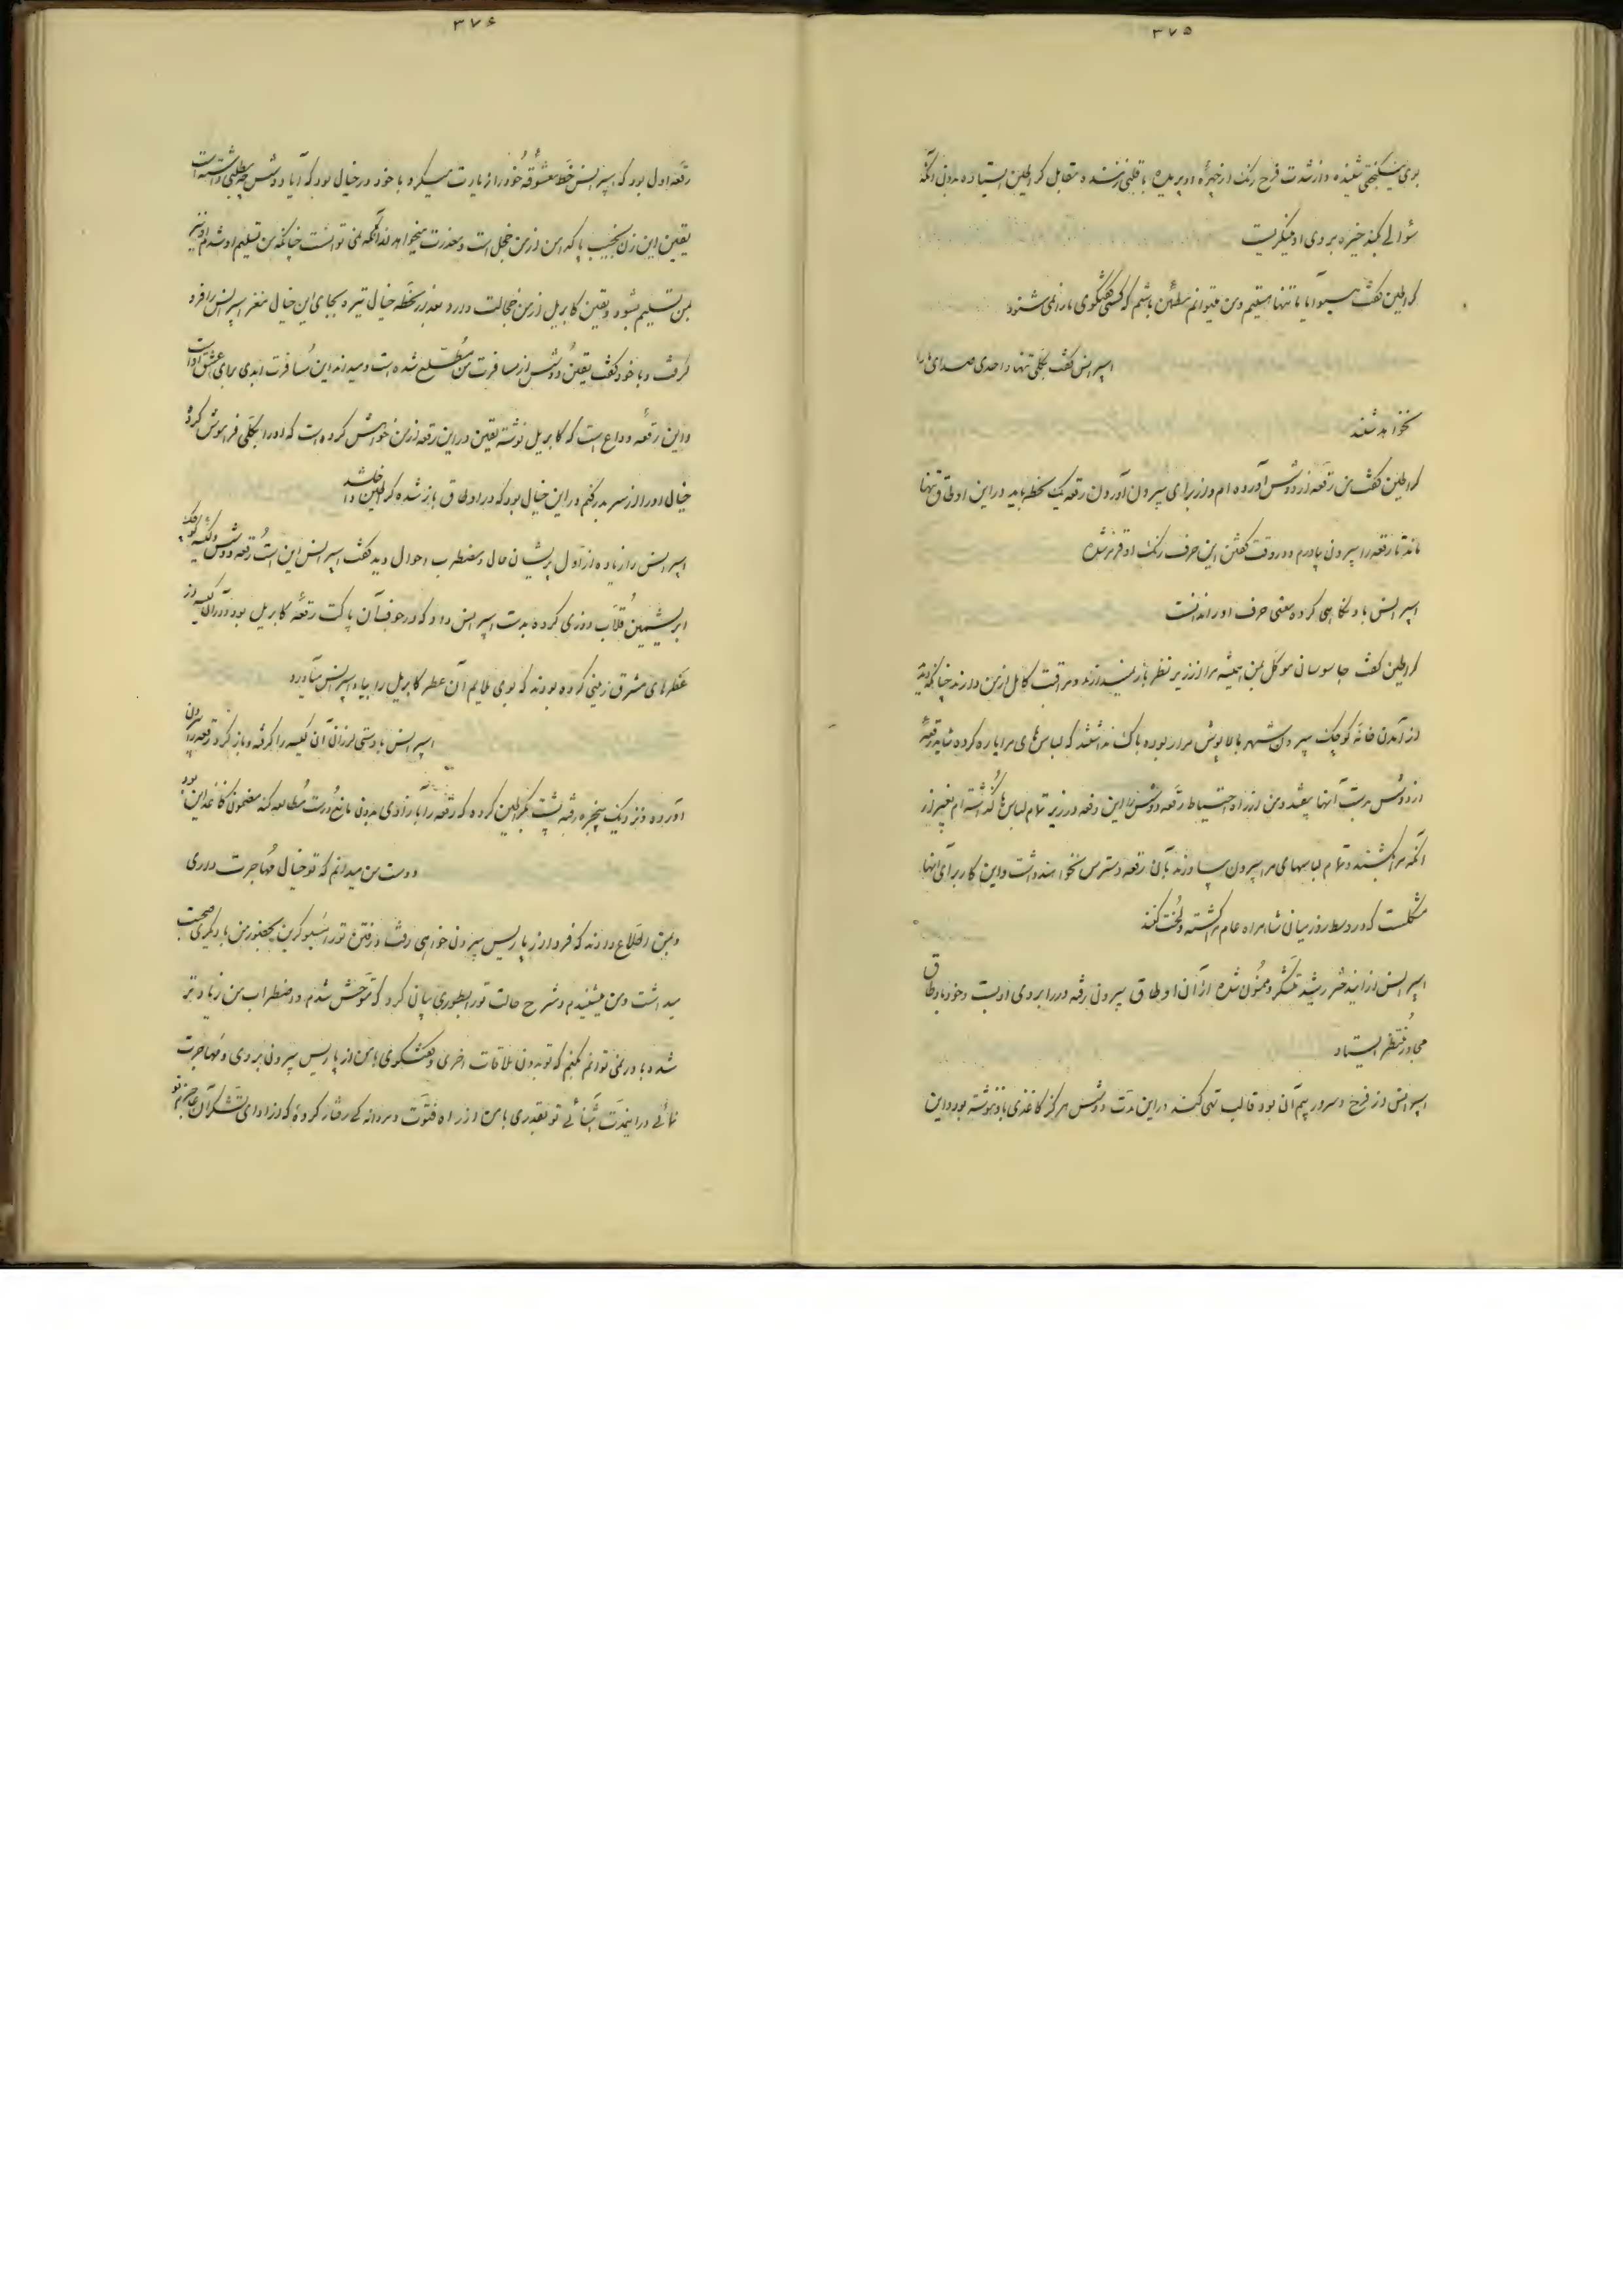 ۳۷۵
بوی نیکبختی شنیده و از شدت فرح رنک از چهرهٔ او پریده با قلبی زننده مقابل کراطین ایستاده بدون آنکه
سؤالی کند خیره بروی او مینکریست
کراطین کفت مسیو آیا ما تنها هستیم و من میتوانم مطمئن باشم که کسی کفتکوی ما را نمی شنود
اسپرانس کفت بکلی تنها و احدی صدای ما را
نخواهد شنید
کراطین کفت من رقعه از دوشس آورده ام و از برای بیرون آوردن رقعه یک لحظه باید در این اوطاق تنها
ماند تا رقعه را بیرون بیاورم و در وقت کفتن این حرف رنک او قرمز شد
اسپرانس باو نکاهی کرده معنی حرف او را ندانست
کراطین کفت جاسوسان موکل بمن همیشه مرا از زیر نظر باز نمیدارند و مراقبت کامل از من دارند چنانکه دیدید
از آمدن خانه کوچک بیرون شهر بالاپوش مرا ربوده باک نداشتند که لباس های مرا پاره کرده شاید رقعهٔ
از دوشس بدست آنها بیفتد و من از راه احتیاط رقعه دوشس را این دفعه در زیر تمام لباس ها کذاشته ام بغیر از
آنکه مرا بکشند و تمام لباسهای مرا بیرون بیاورند بآن رقعه دسترس نخواهند داشت و این کار برای آنها
مشکلست که در وسط روز میان شاهراه عام مرا کشته و لخت کنند
اسپرانس از این دختر رشید متشکر و ممنون شده از آن اوطاق بیرون رفته در را بروی او بست و خود باوطاق
مجاور منتظر ایستاد
اسپرانس از فرح و سرور بیم آن بود قالب تهی کند در این مدت دوشس هرکز کاغذی باو ننوشته بود و این
۳۷۶
رقعه اول بود که اسپرانس خط معشوقه خود را زیارت میکرد با خود در خیال بود که آیا دوشس چه مطلبی داشته است
یقین این زن نجیب پاکدامن از من خجل است و معذرت میخواهد از آنکه نمی توانست چنانکه من تسلیم او شدم او نیز
بمن تسلیم بشود و یقین کابریل از من خجالت دارد بعد از لحظه خیال تیره بجای این خیال مغز اسپرانس را فرو
کرفت و با خود کفت یقین دوشس از مسافرت من مطلع شده است و میداند این مسافرت ابدی برای عشق او است
و این رقعه وداع است که کابریل نوشته یقین در این رقعه از من خواهش کرده است که او را بکلی فراموش کرده
خیال او را از سر بدر کنم در این خیال بود که در اوطاق باز شده کراطین داخل شد
اسپرانس را زیاده از اول پریشان حال و مضطرب احوال دید کفت اسپرانس این است رقعه دوشس و کیسه کوچک
ابریشمین قلاب دوزی کرده بدست اسپرانس داد که در جوف آن پاکت رقعهٔ کابریل بود و در آن کیسه از
عطرهای مشرق زمینی کرده بودند که بوی ملایم آن عطر کابریل را بیاد اسپرانس میآورد
اسپرانس با دستی لرزان آن کیسه را کرفته و باز کرد رقعه را بیرون
آورده و نزدیک پنجره رفته پشت بکراطین کرده که رقعه را با آزادی بدون مانع درست مطالعه کند مضمون کاغذ این بود
دوست من میدانم که تو خیال مهاجرت داری
و بمن اطلاع دادند که فردا از پاریس بیرون خواهی رفت و رفتن تو را مسیو کرین بحضور من با دیکری صحبت
میداشت و من میشنیدم و شرح حالت تو را بطوری بیان کرد که متوحش شدم و اضطراب من زیادتر
شد باور نمی توانم بکنم که تو بدون ملاقات اخری و کفتکوی با من از پاریس بیرون بروی و مهاجرت
نمائی در این مدت آشنائی تو بقدری با من از راه فتوت و مردانه کی رفتار کردهٔ که از ادای تشکر آن عاجزم تو